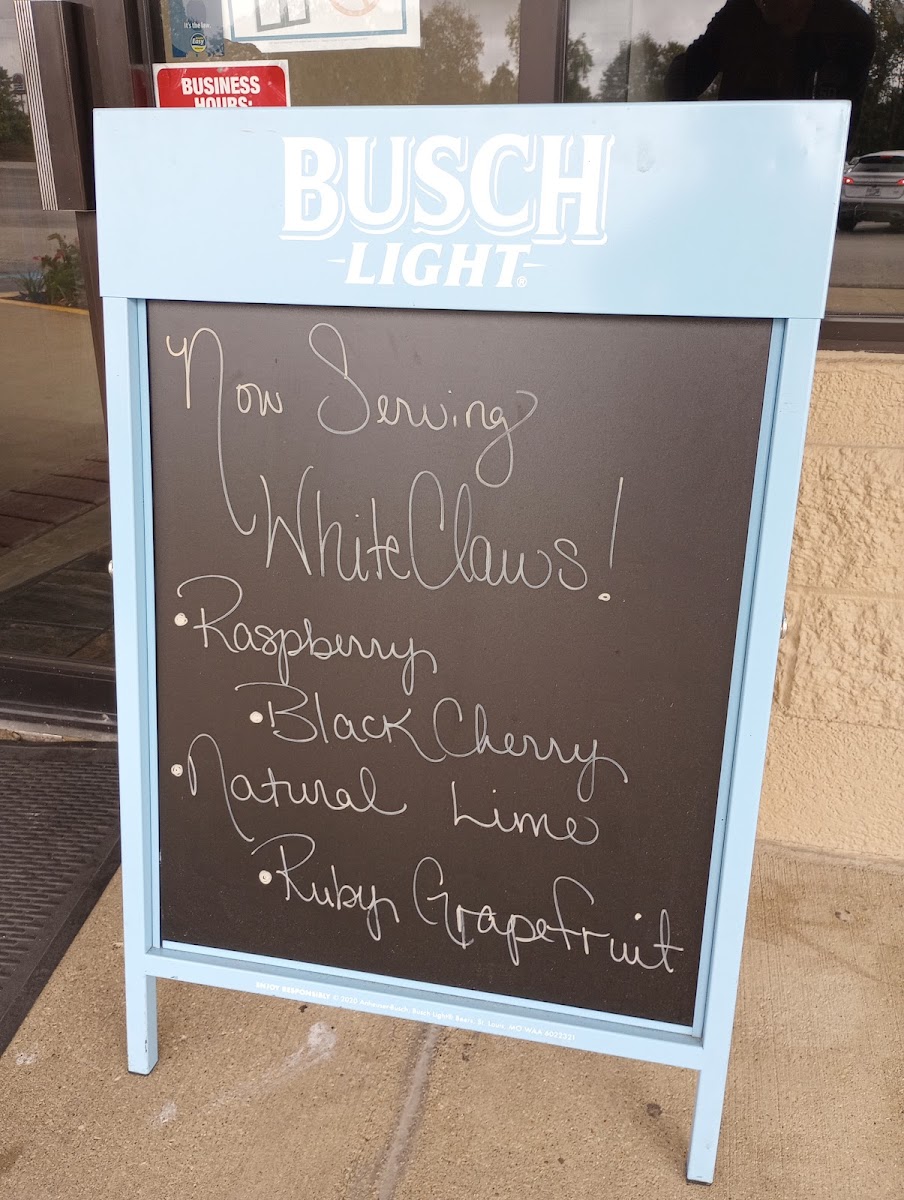 It's the law
BUSINESS
HOURS:
BUSCH
LIGHT®
Now Serving
White Claws!
• Raspberry
• Black Cherry
• Natural Lime
• Ruby Grapefruit
ENJOY RESPONSIBLY © 2020 Anheuser-Busch, Busch Light® Beers, St. Louis, MO